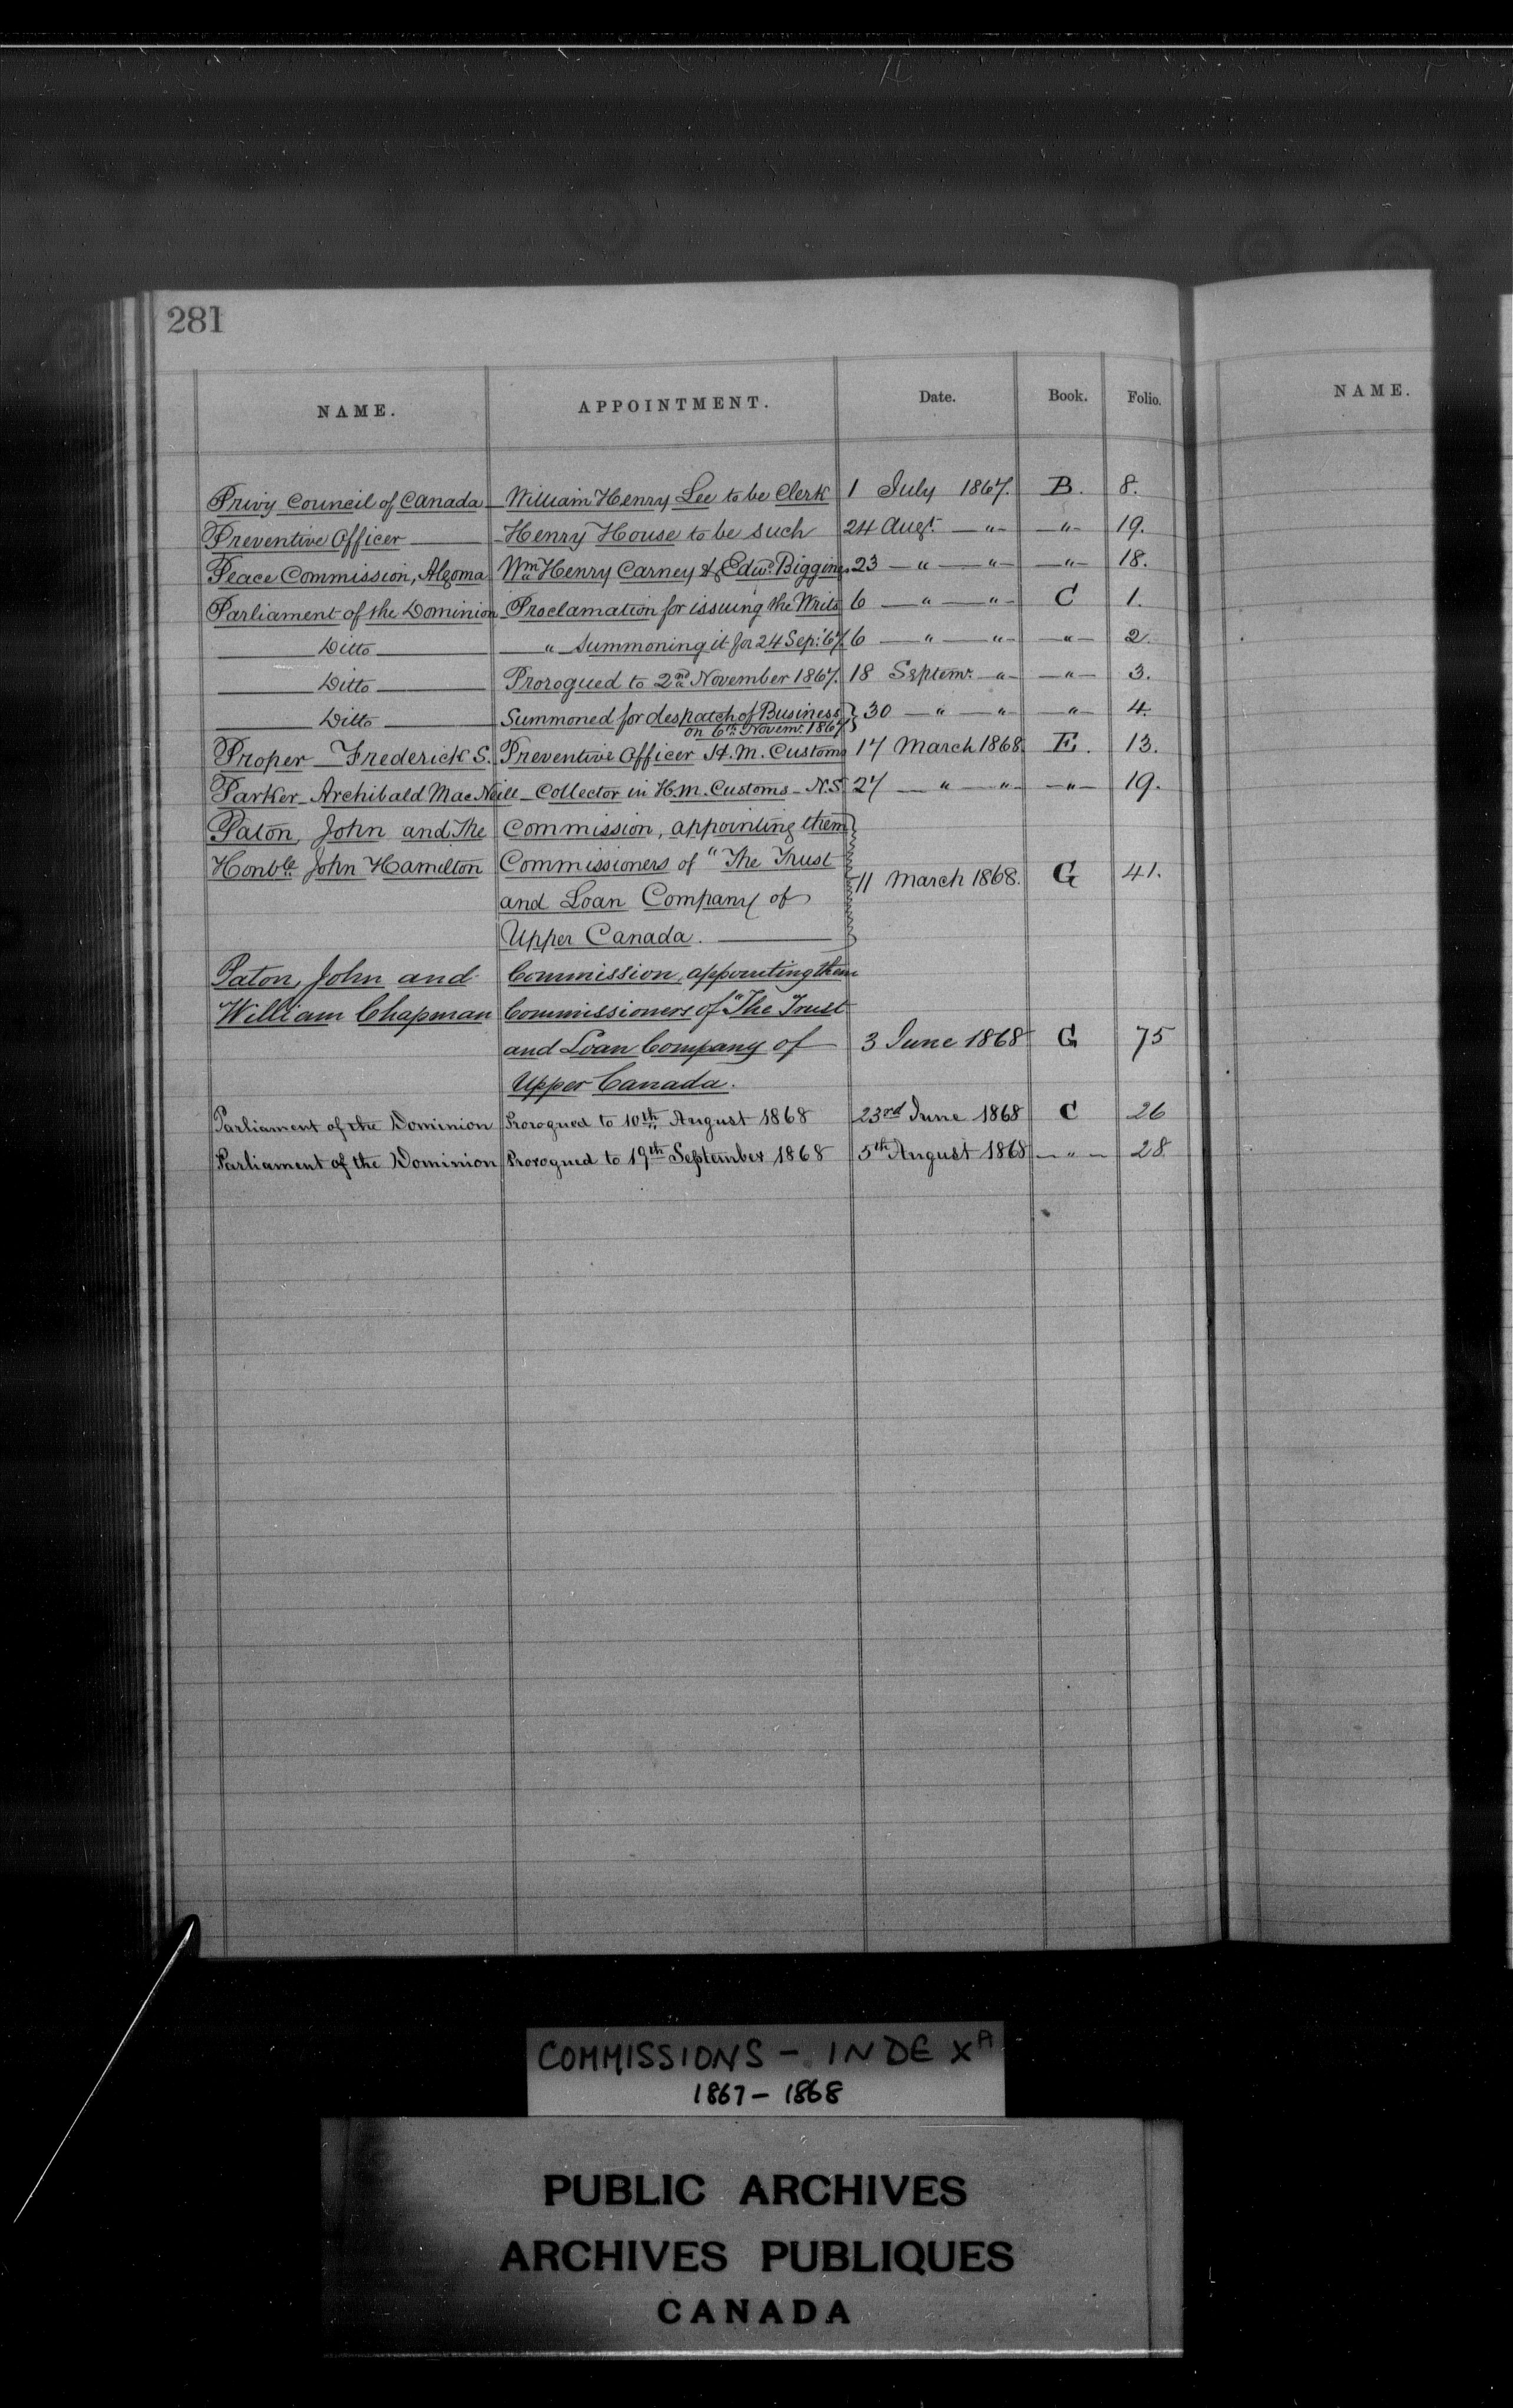 281
NAME. APPOINTMENT. Date. Book. Folio. NAME.
Privy Council of Canada William Henry Lee to be Clerk 1 July 1867. B. 8.
Preventive Officer Henry House to be such 24 Augt. " " 19.
Peace Commission, Algoma Wm Henry Carney & Edwd. Biggings 23 " " " 18.
Parliament of the Dominion Proclamation for issuing the Writs 6 " " C 1.
Ditto " Summoning it for 24 Sep: '67. 6 " " " 2.
Ditto Prorogued to 2nd November 1867. 18 Septemr. " " 3.
Ditto Summoned for despatch of Business 30 " " " 4.
on 6th Novemr. 1867
Proper Frederick S. Preventive Officer H.M. Customs 17 March 1868 E. 13.
Parker Archibald MacNeill Collector in H.M. Customs - N.S. 27 " " " 19.
Paton, John and The Commission, appointing them
Honble. John Hamilton Commissioners of "The Trust
and Loan Company of 11 March 1868. G 41.
Upper Canada.
Paton, John and Commission, appointing them
William Chapman Commissioners of "The Trust
and Loan Company of 3 June 1868 G 75
Upper Canada.
Parliament of the Dominion Prorogued to 10th August 1868 23rd June 1868 C 26
Parliament of the Dominion Prorogued to 19th September 1868 5th August 1868 " 28
COMMISSIONS - INDEX A
1867 - 1868
PUBLIC ARCHIVES
ARCHIVES PUBLIQUES
CANADA